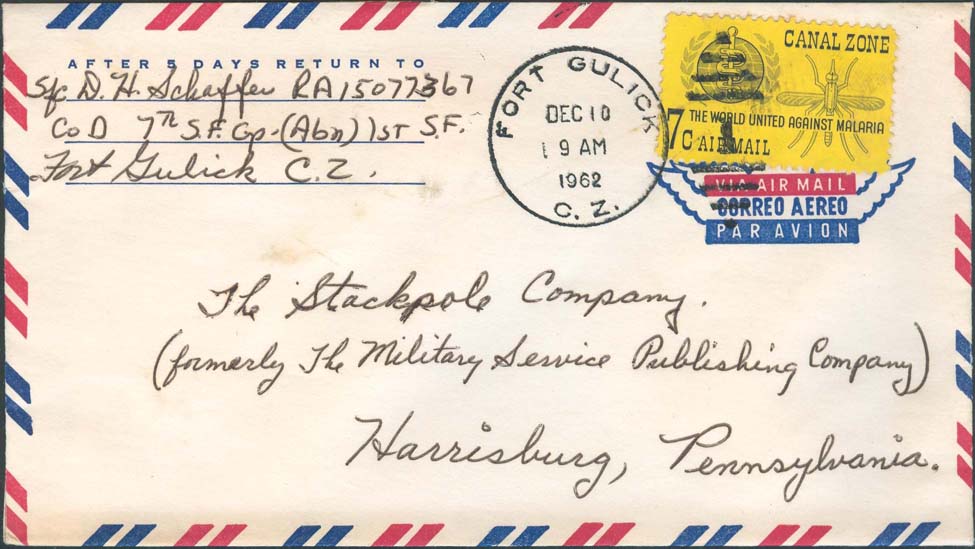 AFTER 5 DAYS RETURN TO
Sfc D. H. Schaffer RA15077367
Co D 7th S.F. Gp. (Abn) 1st S.F.
Fort Gulick C.Z.
FORT GULICK
DEC 10
9 AM
1962
C. Z.
CANAL ZONE
THE WORLD UNITED AGAINST MALARIA
7c AIR MAIL
VIA AIR MAIL
CORREO AEREO
PAR AVION
The Stackpole Company.
(formerly The Military Service Publishing Company)
Harrisburg, Pennsylvania.